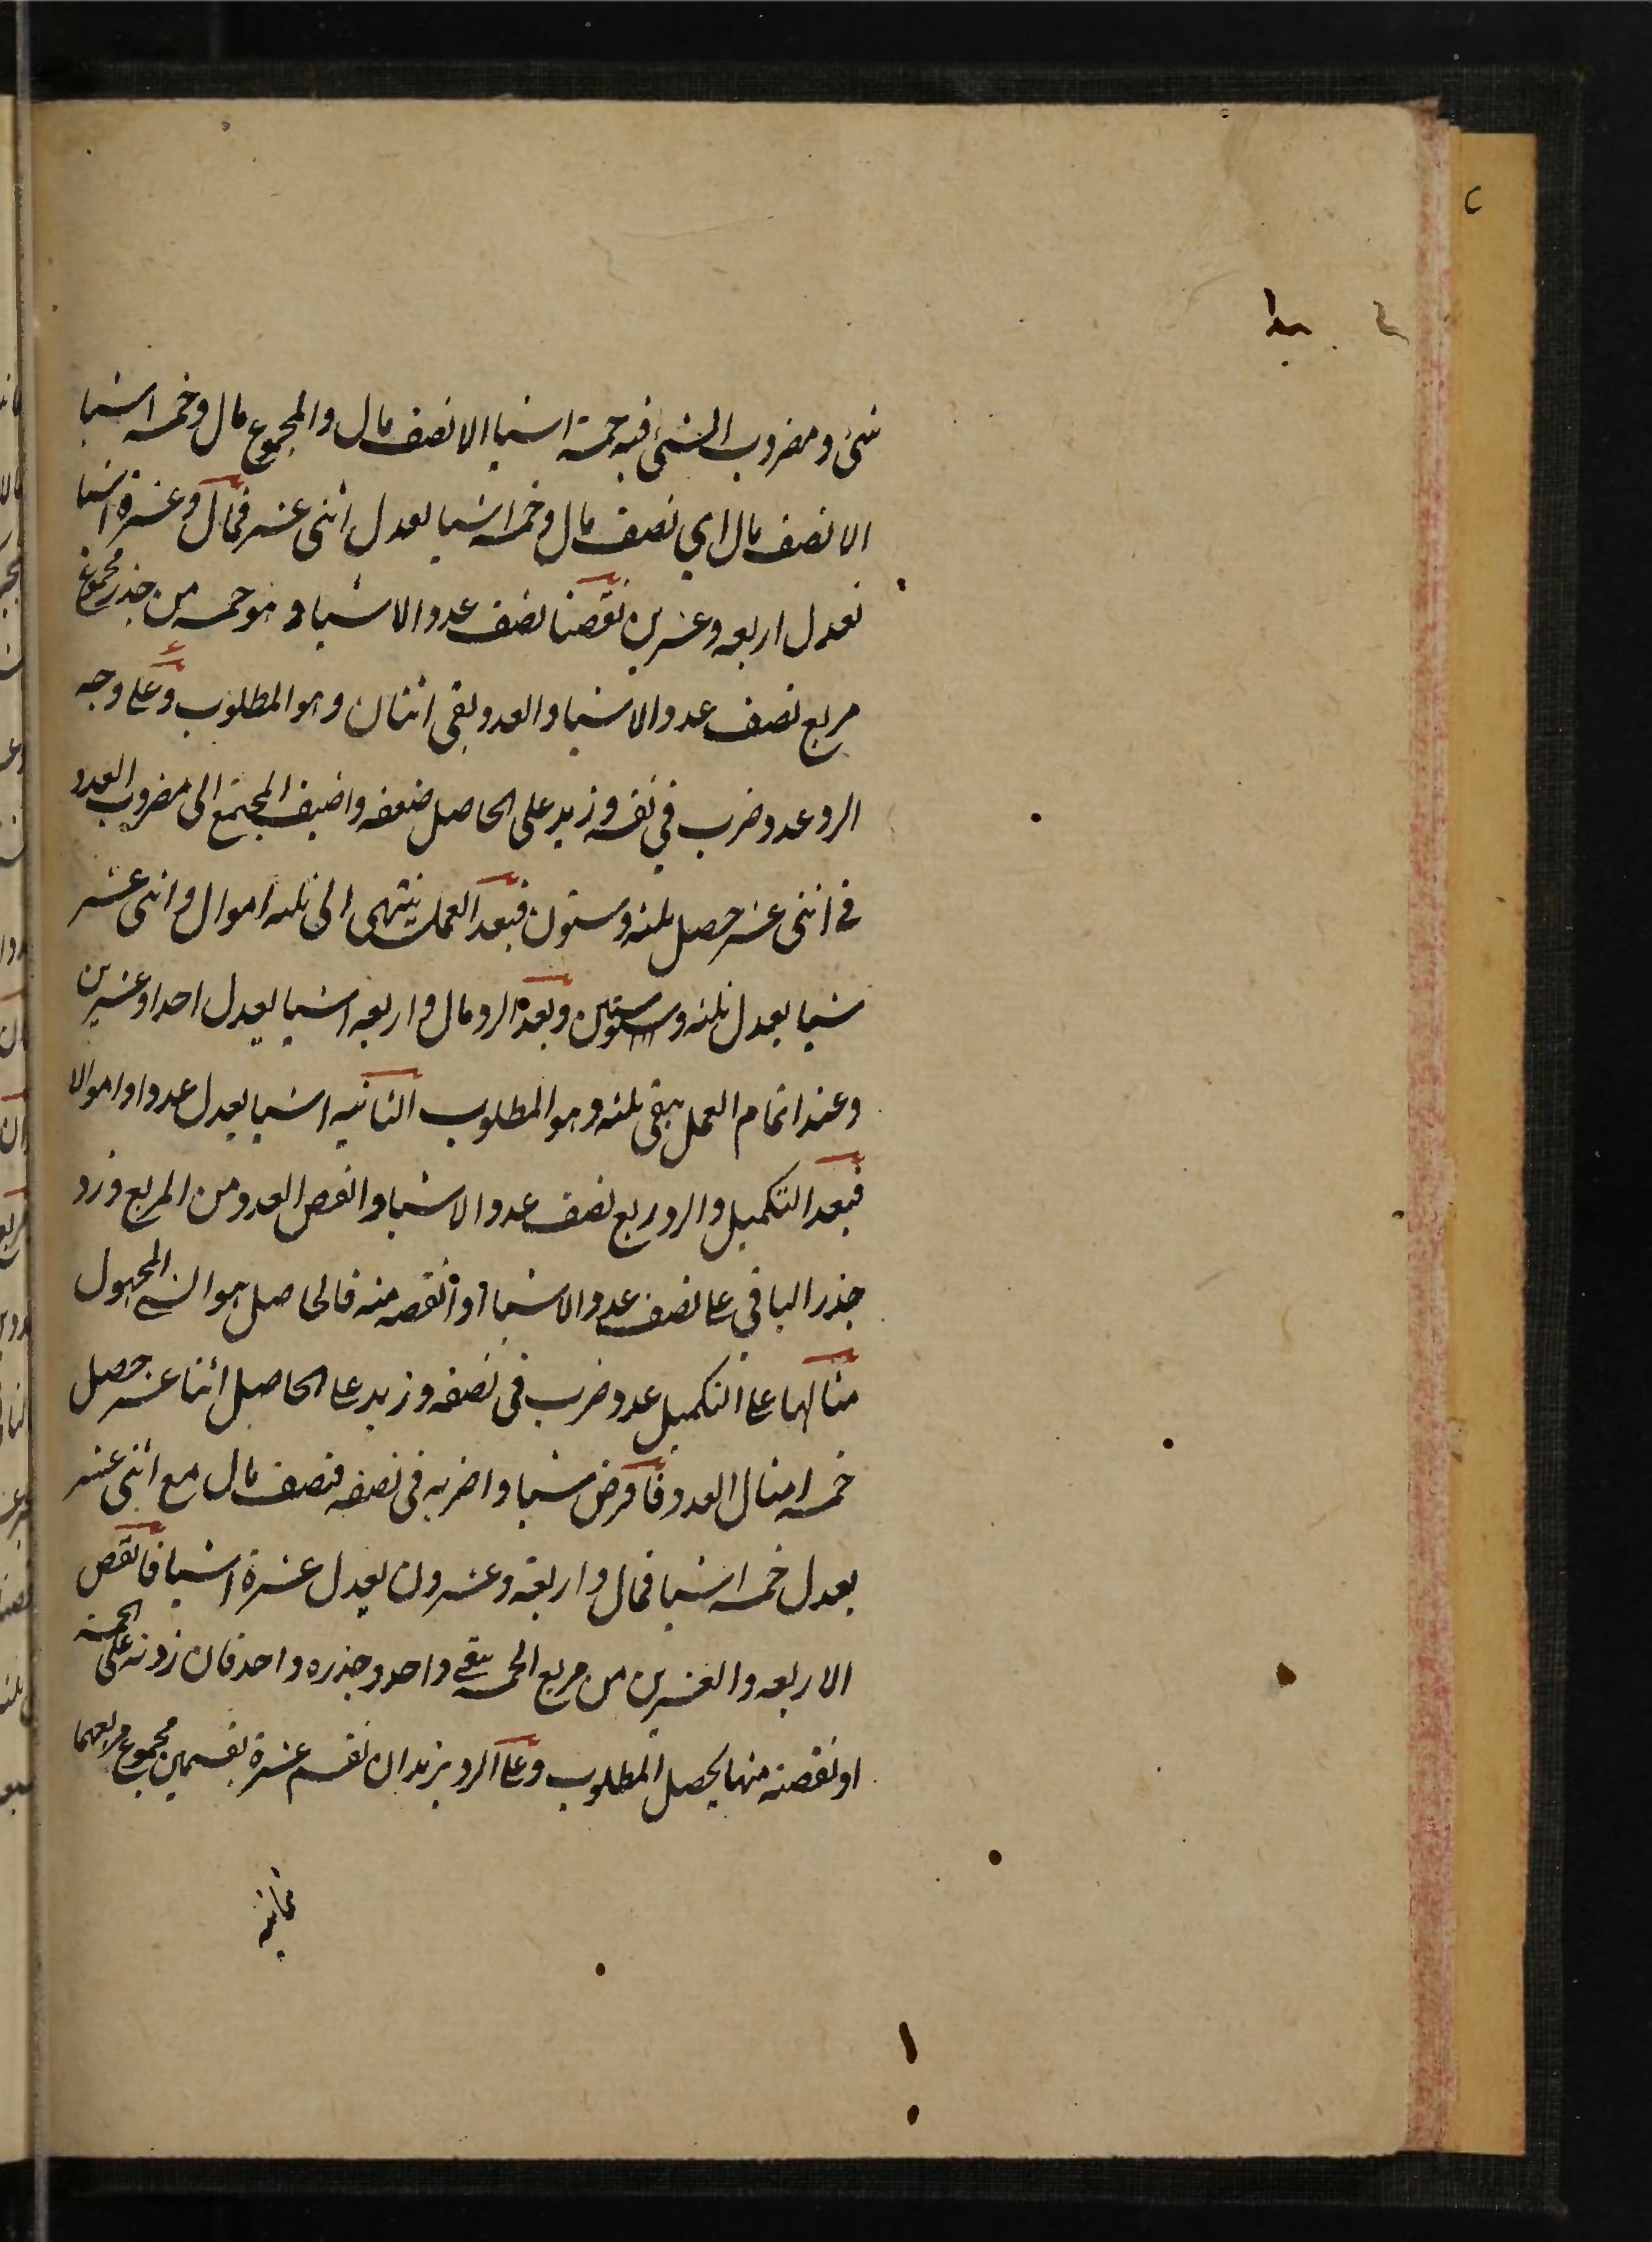 شئ ومضروب الشئ فيه خمسة اشيا الا نصف مال والمجموع مال وخمسه اشيا
الا نصف مال اي نصف مال وخمسه اشيا يعدل اثنى عشر فمال وعشرة اشيا
تعدل اربعه وعشرين نقصنا نصف عدد الاشيا وهو خمسه من جذر مجموع
مربع نصف عدد الاشيا والعدد بقى اثنان وهو المطلوب وعلى وجه
الرد عدد ضرب في نفسه وزيد على الحاصل ضعفه واضيف المجتمع الى مضروب العدد
في اثنى عشر حصل ثلثه وستون فبعد العمل ينتهى الى ثلثه اموال واثنى عشر
شيا يعدل ثلثه وستين وبعد الرد مال واربعه اشيا يعدل احدا وعشرين
وعند اتمام العمل يبقى ثلثه وهو المطلوب الثانيه اشيا يعدل عددا واموالا
فبعد التكميل والرد ربع نصف عدد الاشيا وانقص العدد من المربع وزد
جذر الباقي على نصف عدد الاشيا او انقصه منه فالحاصل هو الشئ المجهول
مثالها على التكميل عدد ضرب فى نصفه وزيد على الحاصل اثنا عشر حصل
خمسه امثال العدد فافرض شيا واضربه فى نصفه فنصف مال مع اثنى عشر
يعدل خمسه اشيا فمال واربعة وعشرون يعدل عشرة اشيا فانقص
الاربعه والعشرين من مربع الخمسه يبقى واحد وجذره واحد فان زدته على الخمسه
او نقصته منها يحصل المطلوب وعلى الرد يزيد ان نقسم عشرة بقسمين مجموع مربعهما
ثمانيه